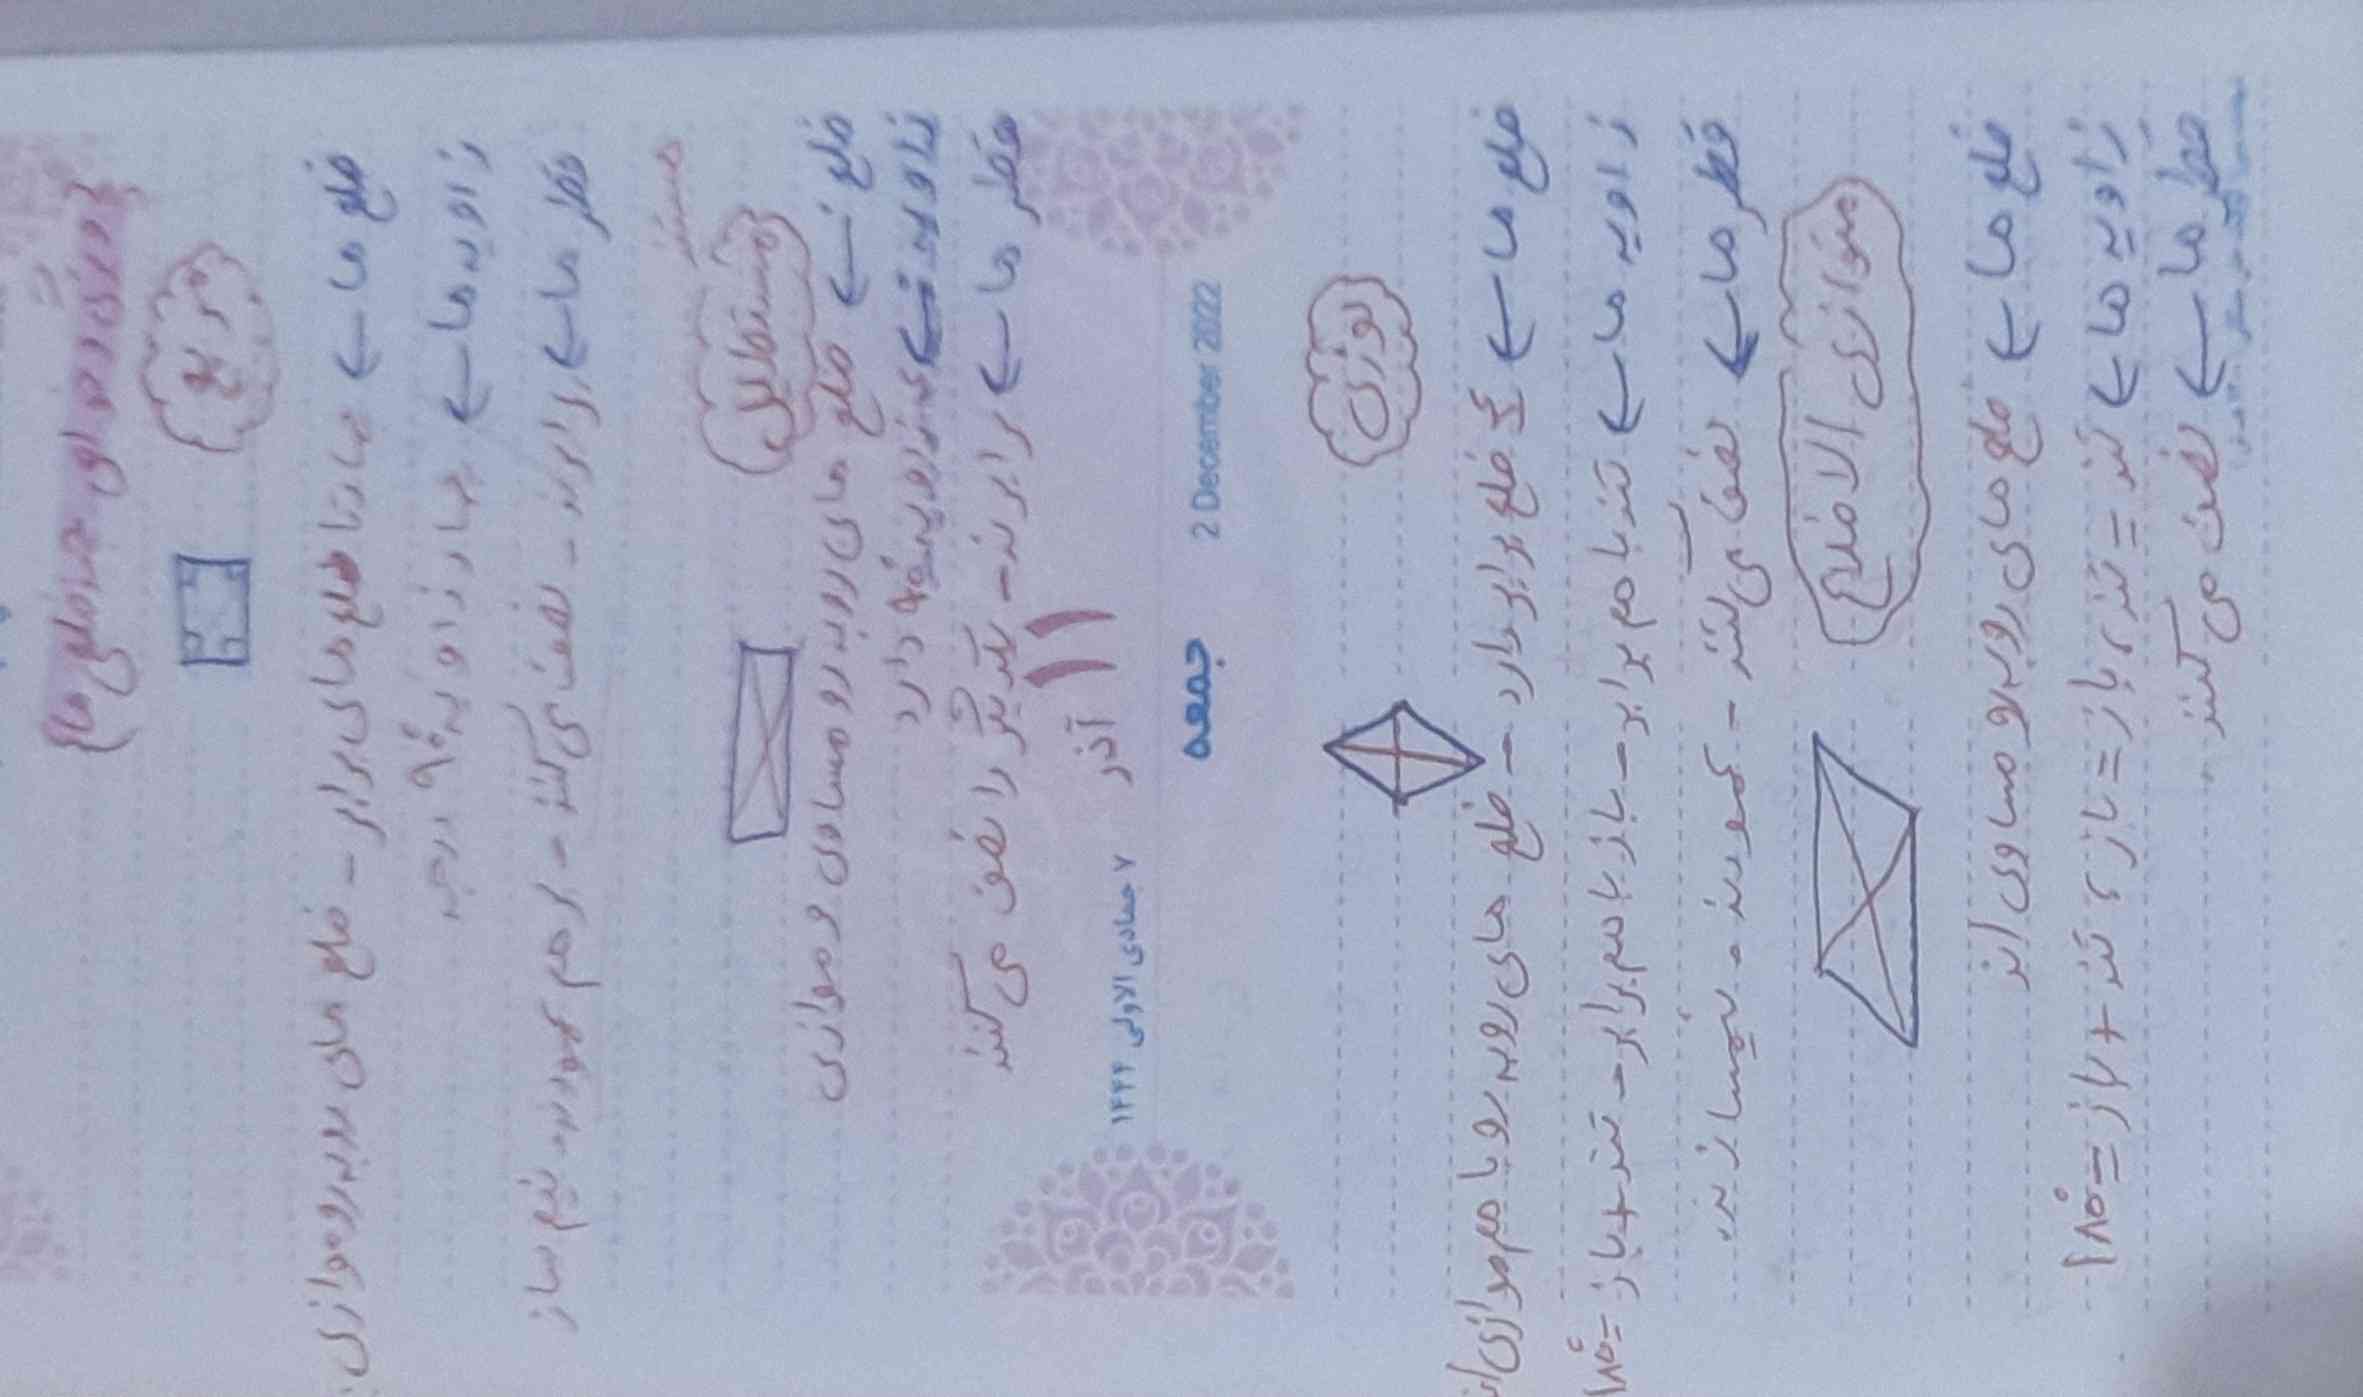 {ویژگی های چند ضلعی ها}
مربع
ضلع ها ← چهارتا ضلع های برابر - ضلع های روبه رو موازی
زاویه ها ← چهار زاویه ۹۰ درجه
قطر ها ← برابرند - نصف می کنند - بر هم عمودند نیم ساز
مستطیل
ضلع ← ضلع های روبه رو مساوی و موازی
زاویه ← ۴ زاویه ۹۰ دارد
قطر ها ← برابرند - یکدیگر را نصف می کنند
۱۱ آذر
۷ جمادی الاولی ۱۴۴۴
2 December 2022
جمعه
لوزی
ضلع ها ← ۴ ضلع برابر دارد - ضلع های روبه رو با هم موازی اند
زاویه ها ← تند با هم برابر - باز با هم برابر - تند + باز = ۱۸۰
قطر ها ← نصف می کنند - عمودند - نیمسازند
متوازی الاضلاع
ضلع ها ← ضلع های روبه رو مساوی اند
زاویه ها ← تند = تند، باز = باز، تند + باز = ۱۸۰
قطر ها ← نصف می کنند